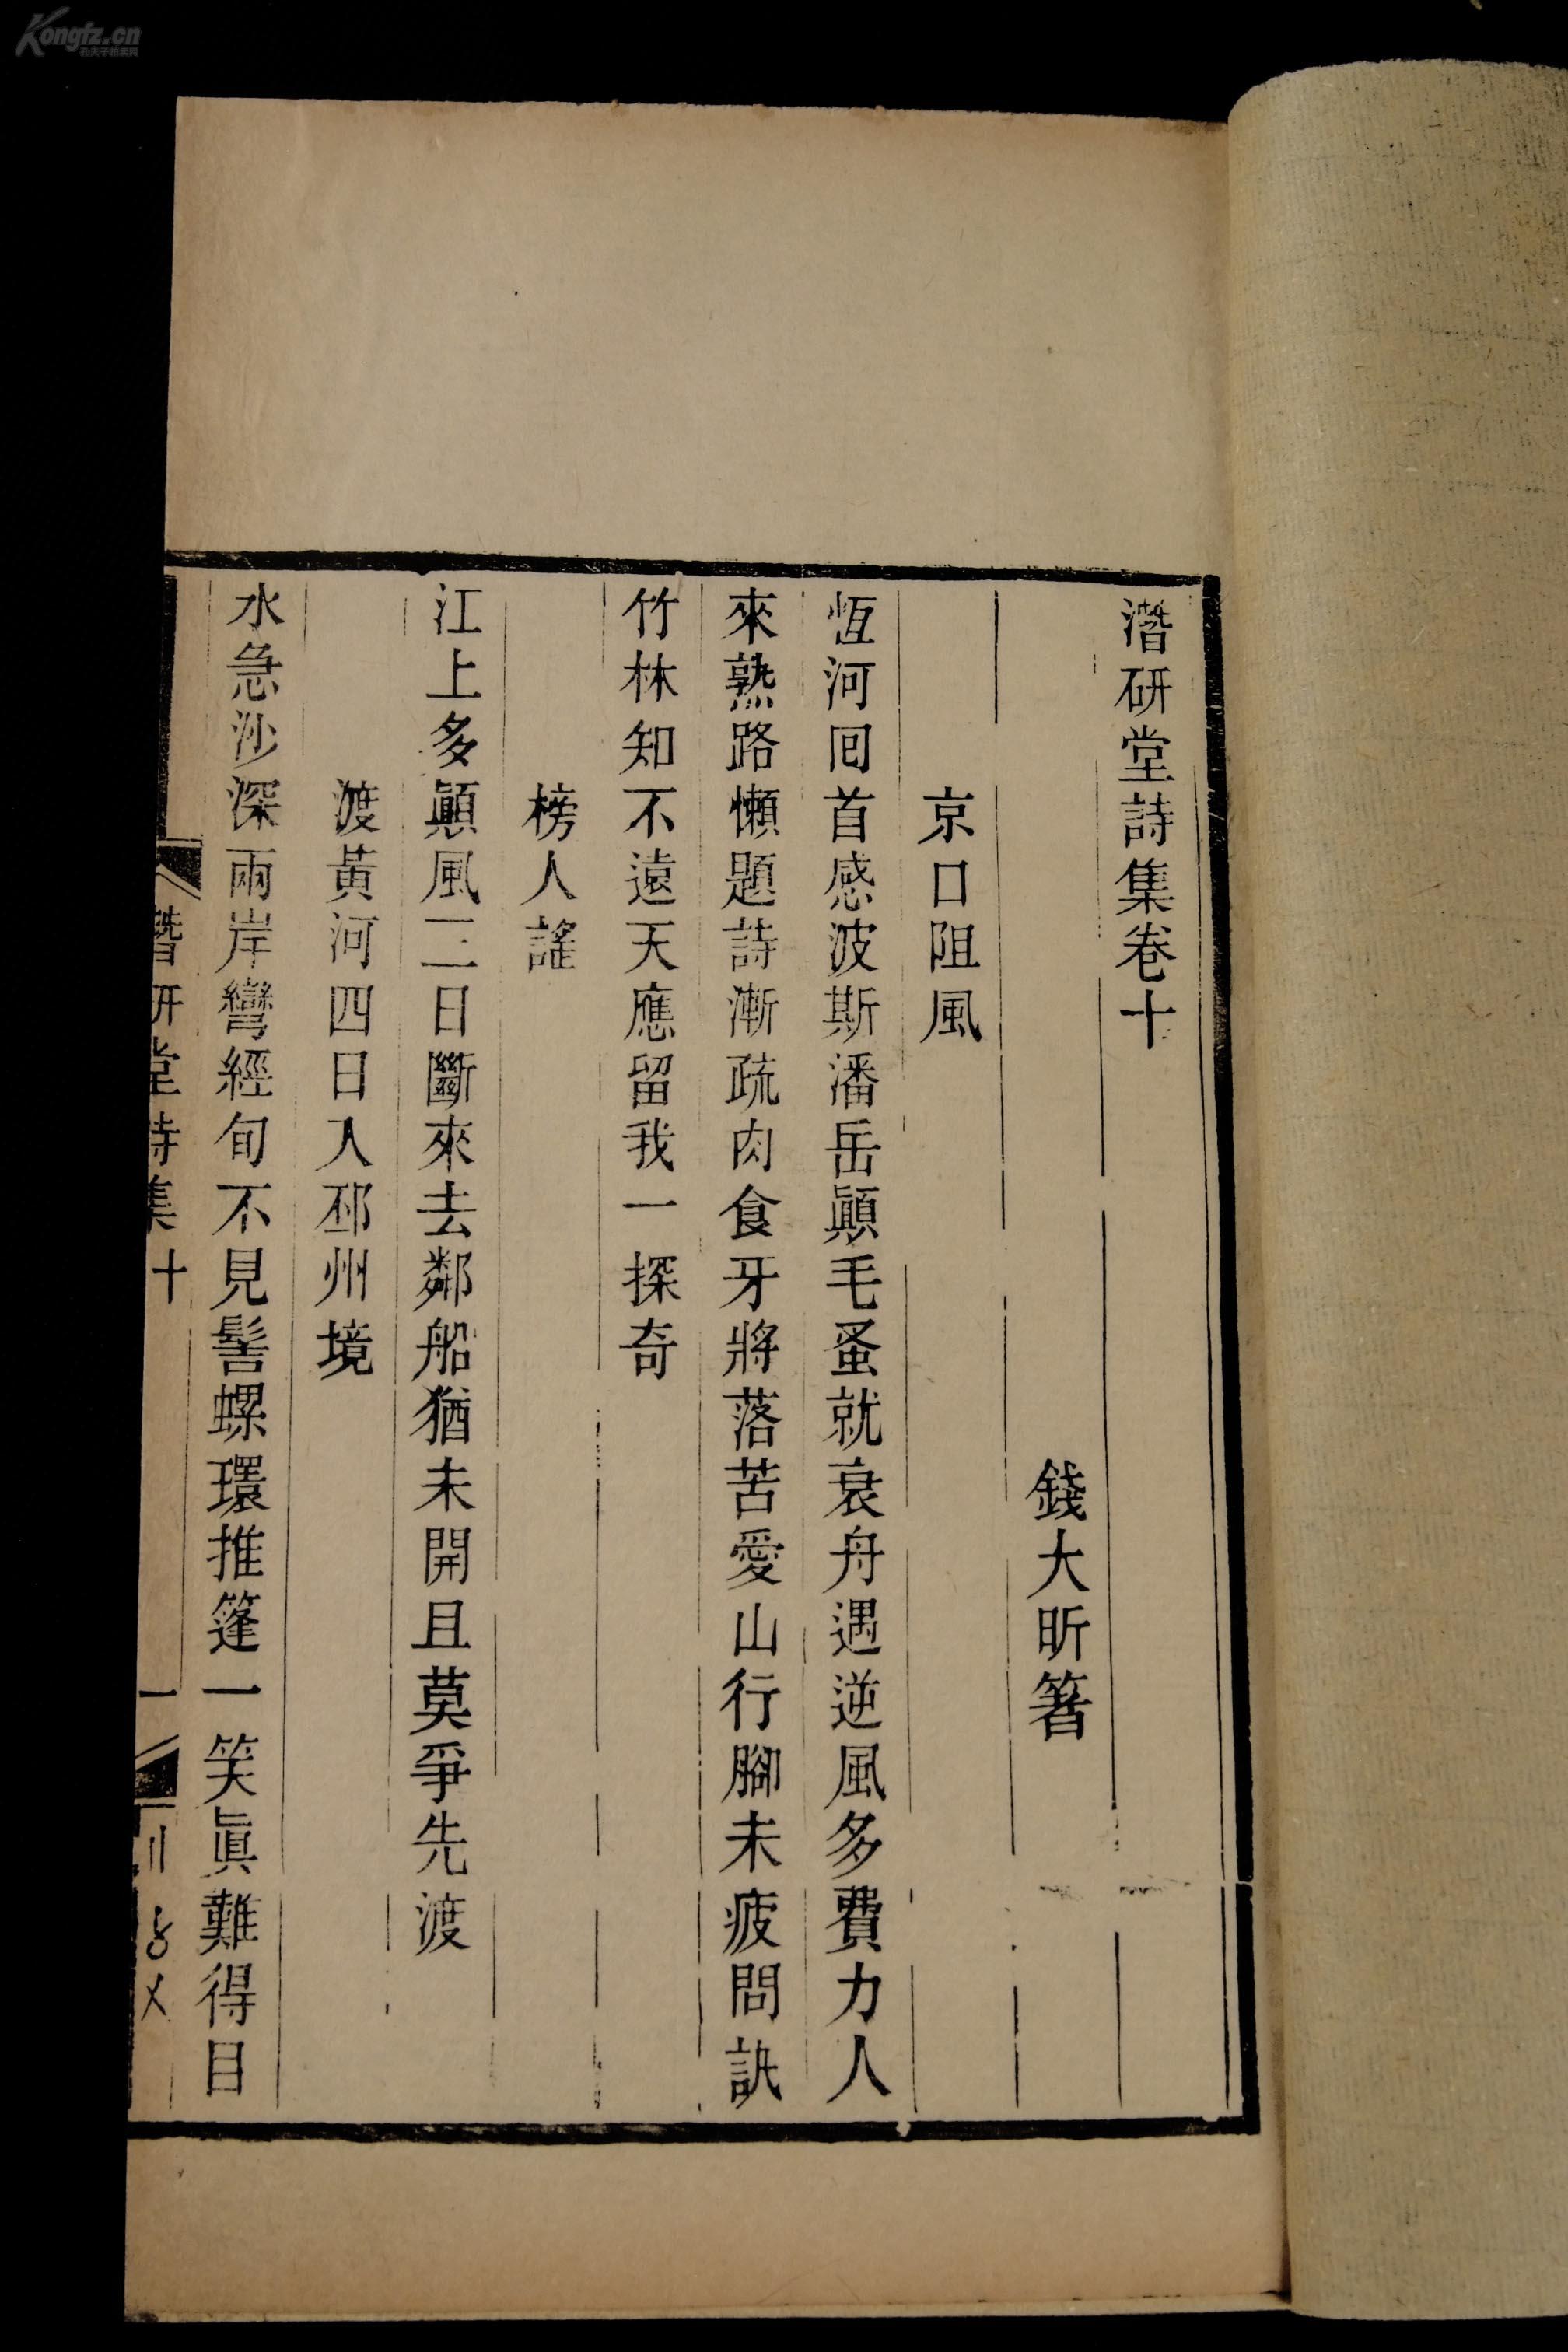 Kongfz.cn
孔夫子拍卖网
潛研堂詩集卷十
錢大昕箸
京口阻風
恆河囘首感波斯潘岳顚毛蚤就衰舟遇逆風多費力人
來熟路懶題詩漸疏肉食牙將落苦愛山行腳未疲問訊
竹林知不遠天應留我一探奇
榜人謠
江上多顚風三日斷來去鄰船猶未開且莫爭先渡
渡黃河四日入邳州境
水急沙深兩岸彎經旬不見髻螺環推篷一笑眞難得目
潛研堂詩集十
一